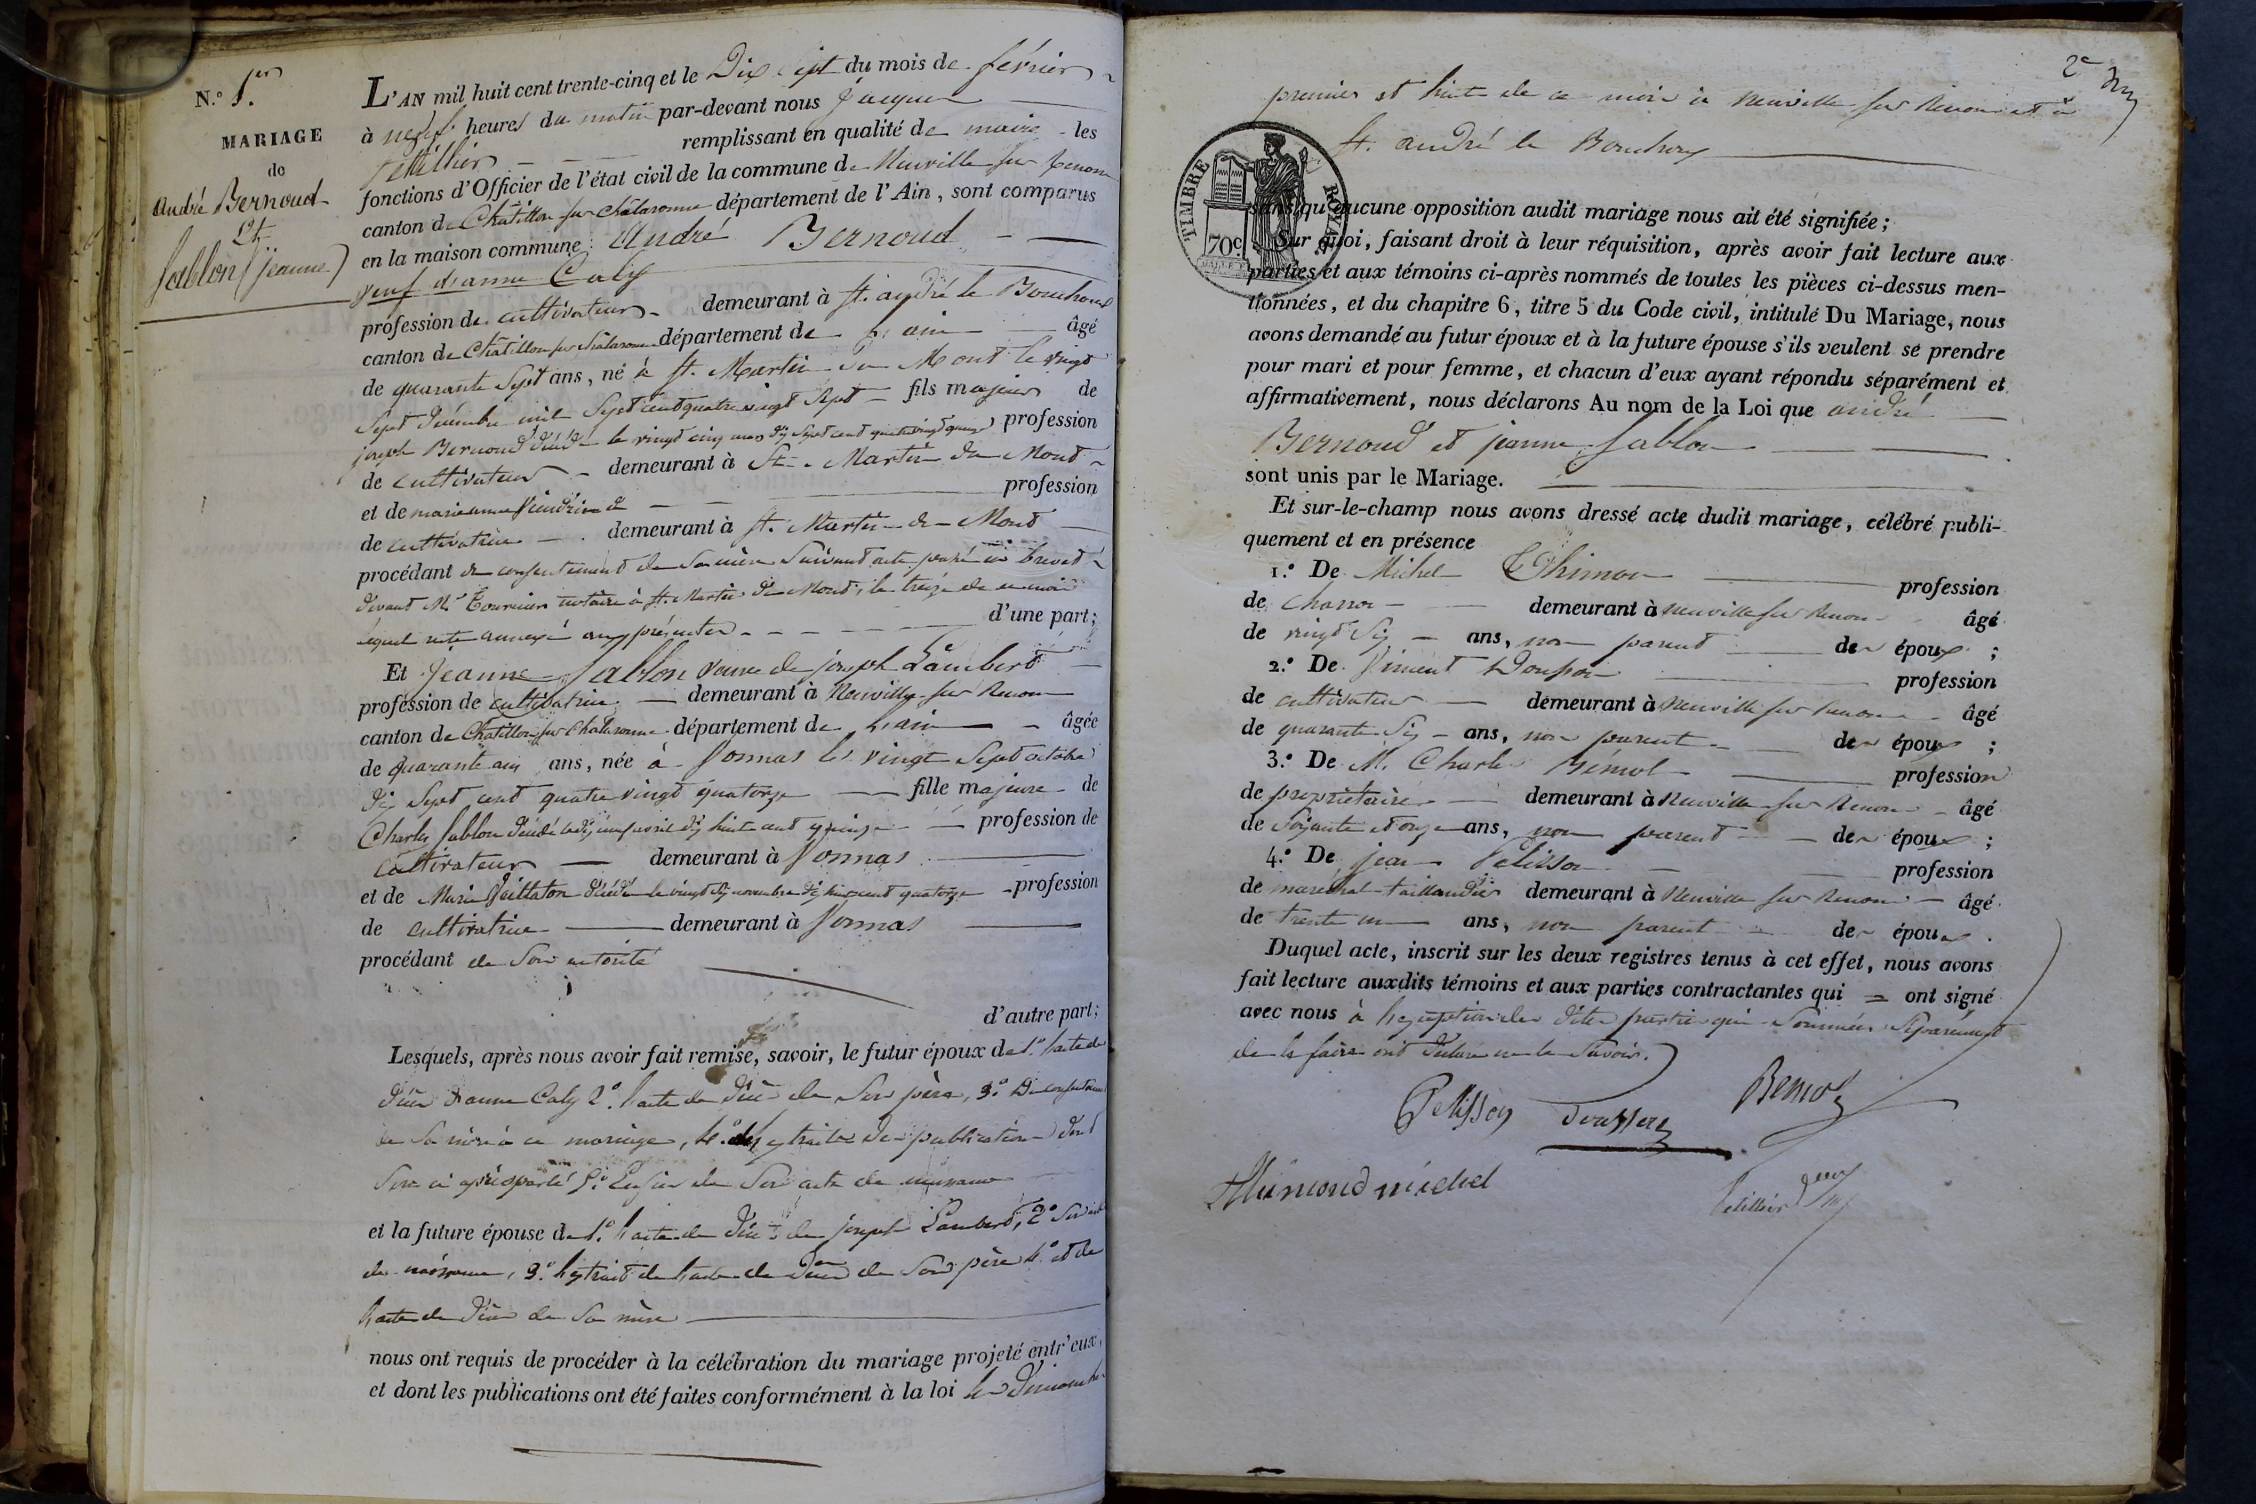 N.o 1.er
MARIAGE
de
André Bernoud
Et
Sablon (jeanne)
L'AN mil huit cent trente-cinq et le Dix Sept du mois de février
à neuf heures du matin par-devant nous Jacques
remplissant en qualité de maire les
fonctions d'Officier de l'état civil de la commune de Neuville sur Renom
canton de Châtillon sur Chalaronne département de l'Ain, sont comparus
en la maison commune: André Bernoud
veuf Caly
profession de cultivateur demeurant à st. andré le Bouchoux
canton de Châtillon sur Chalaronne département de l'ain âgé
de quarante Sept ans, né à st. Martin du Mont le vingt
Sept décembre mil Sept cent quatre vingt Sept fils majeur de
joseph Bernoud décédé le vingt cinq mars dix Sept cent quatre vingt profession
de cultivateur demeurant à St. Martin du Mont
et de marie anne profession
de cultivatrice demeurant à st. Martin du Mont
procédant du consentement de Sa mère Suivant acte passé en brevet
devant M.e notaire à st. Martin du Mont, le treize de ce mois
lequel reste annexé aux présentes d'une part;
Et Jeanne Sablon veuve de joseph Lambert
profession de cultivatrice demeurant à Neuville sur Renom
canton de Châtillon sur Chalaronne département de L'ain âgée
de quarante ans, née à Vonnas le vingt Sept octobre
dix Sept cent quatre vingt quatorze fille majeure de
Charles Sablon décédé le avril dix huit cent quinze profession de
cultivateur demeurant à Vonnas
et de Marie décédée le vingt novembre dix huit cent quatorze profession
de cultivatrice demeurant à Vonnas
procédant de Son autorité
d'autre part;
Lesquels, après nous avoir fait remise, savoir, le futur époux de 1.o l'acte de
décès Caly 2.o l'acte de décès de Son père, 3.o Du consentement
de Sa mère à ce mariage, 4.o des extraits de publication dont
Sera ci après parlé 5.o Enfin de Son acte de naissance
et la future épouse de 1.o l'acte de décès de joseph Lambert, 2.o Son acte
de naissance, 3.o l'extrait de l'acte de décès de Son père 4.o et de
l'acte de décès de Sa mère
nous ont requis de procéder à la célébration du mariage projeté entr'eux,
et dont les publications ont été faites conformément à la loi les Dimanches
2e
premier et huit de ce mois à Neuville sur Renom et à
st. andré le Bouchoux
TIMBRE ROYAL
70c
sans qu'aucune opposition audit mariage nous ait été signifiée;
Sur quoi, faisant droit à leur réquisition, après avoir fait lecture aux
parties et aux témoins ci-après nommés de toutes les pièces ci-dessus men-
tionnées, et du chapitre 6, titre 5 du Code civil, intitulé Du Mariage, nous
avons demandé au futur époux et à la future épouse s'ils veulent se prendre
pour mari et pour femme, et chacun d'eux ayant répondu séparément et
affirmativement, nous déclarons Au nom de la Loi que andré
Bernoud et jeanne Sablon
sont unis par le Mariage.
Et sur-le-champ nous avons dressé acte dudit mariage, célébré publi-
quement et en présence
1.o De Michel profession
de charron demeurant à Neuville sur Renom âgé
de vingt Six ans, non parent des époux;
2.o De Vincent profession
de cultivateur demeurant à Neuville sur Renom âgé
de quarante Six ans, non parent des époux;
3.o De M. Charles Bémol profession
de propriétaire demeurant à Neuville sur Renom âgé
de Soixante et onze ans, non parent des époux;
4.o De jean Pélisson profession
de maréchal taillandier demeurant à Neuville sur Renom âgé
de trente un ans, non parent des époux.
Duquel acte, inscrit sur les deux registres tenus à cet effet, nous avons
fait lecture auxdits témoins et aux parties contractantes qui ont signé
avec nous à l'exception des dites parties qui Sommées Séparément
de le faire ont déclaré ne le Savoir.
Pelisson
michel